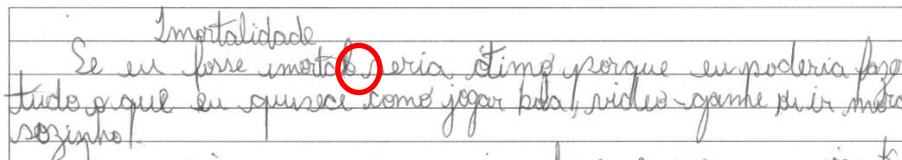 Imortalidade
Se eu fosse imortal seria ótimo porque eu poderia fazer
tudo o que eu quisece como jogar bola, video-game ir mora
sozinho!